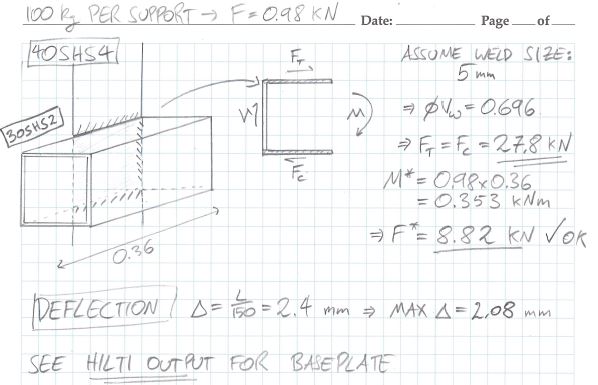 100 kg PER SUPPORT → F = 0.98 KN
Date: Page of
40SHS4
30SHS2
0.36
F_T
W
M
F_C
ASSUME WELD SIZE:
5 mm
⇒ ϕV_w = 0.696
⇒ F_T = F_C = 27.8 KN
M* = 0.98 x 0.36
= 0.353 kNm
⇒ F* = 8.82 KN ✓ OK
DEFLECTION Δ = L/150 = 2.4 mm ⇒ MAX Δ = 2.08 mm
SEE HILTI OUTPUT FOR BASEPLATE